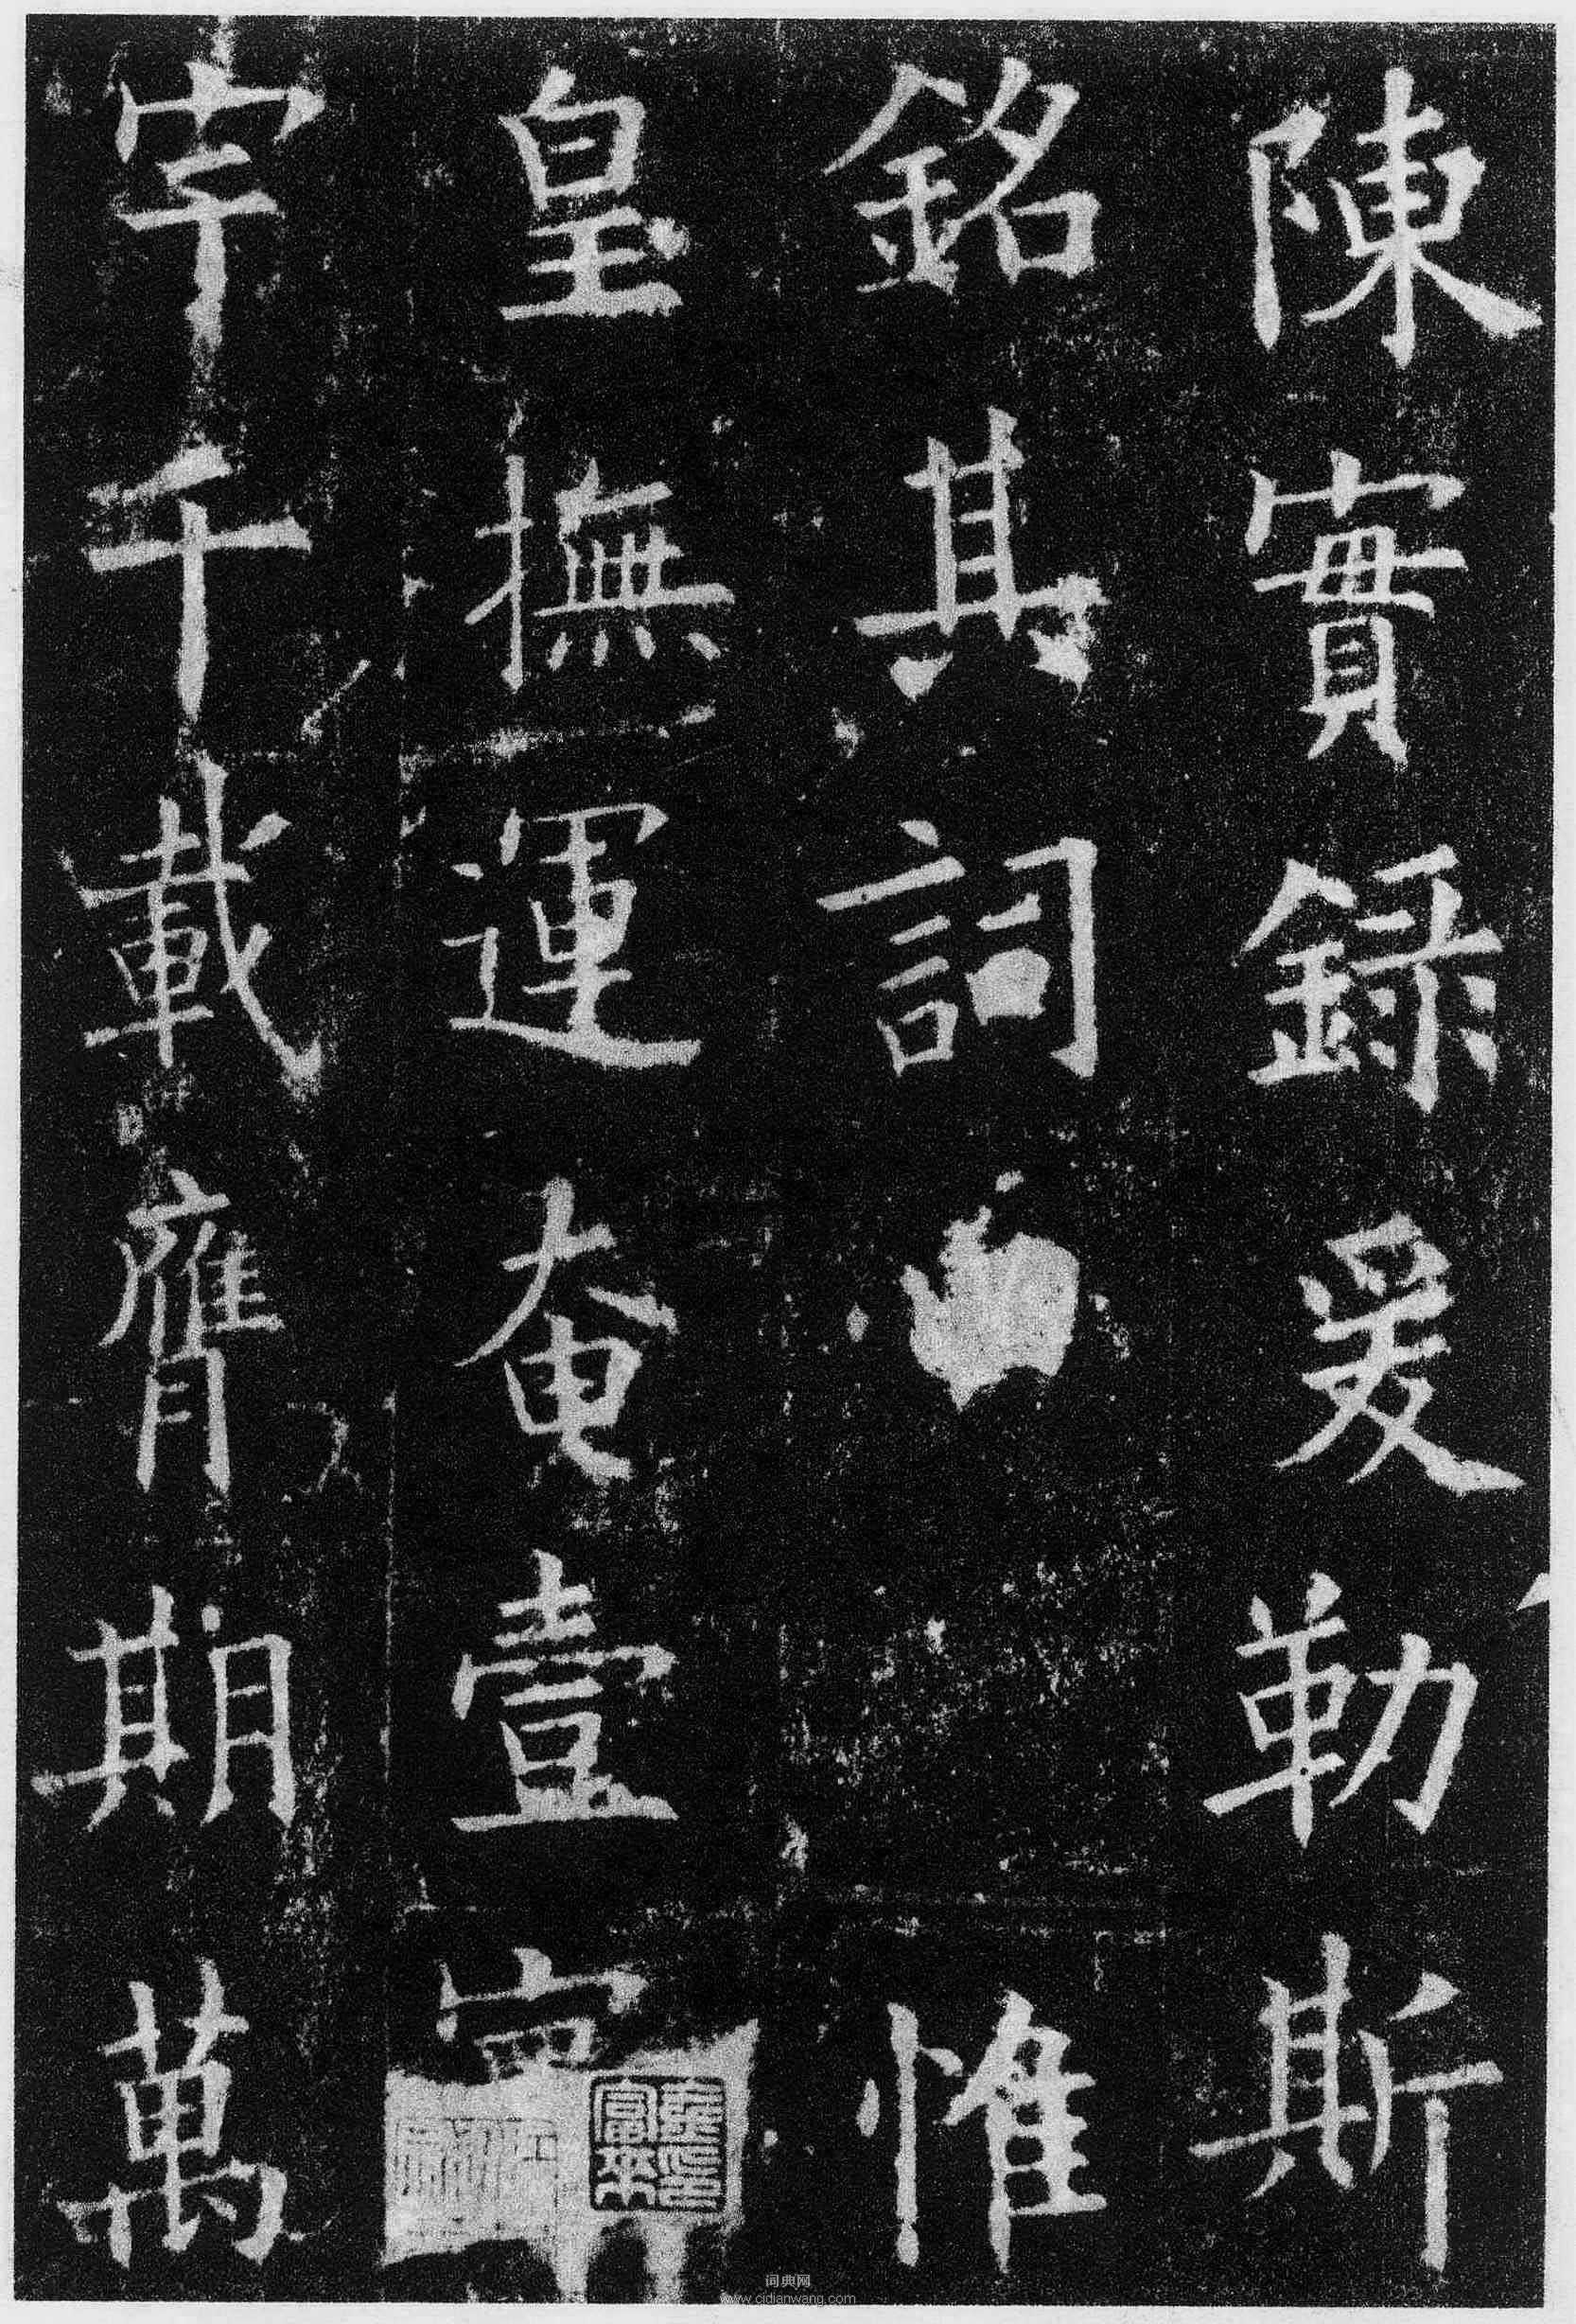 陳實錄爰勒斯
銘其詞曰惟
皇撫運奄壹寰
宇千載膺期萬
词典网
www.cidianwang.com